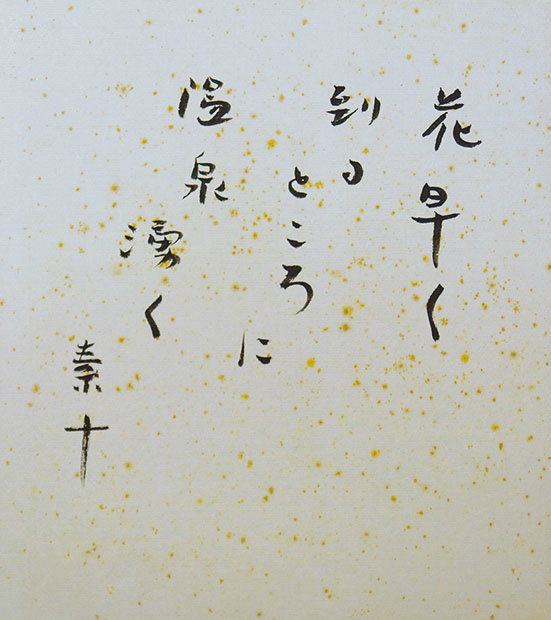 花早く
到る
ところ
に
温泉
湧く
素十